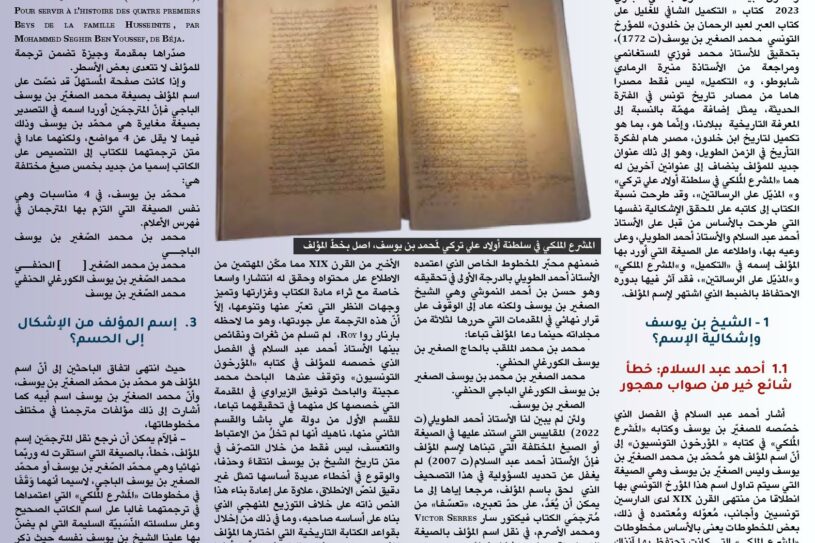 2023 كتاب « التكميل الشافي للغليل على
كتاب العبر لعبد الرحمان بن خلدون» للمؤرخ
التونسي محمد الصغير بن يوسف(ت 1772)،
بتحقيق للأستاذ محمد فوزي المستغانمي
ومراجعة من الأستاذة منيرة الرمادي
شابوطو، و« التكميل» ليس فقط مصدرا
هاما من مصادر تاريخ تونس في الفترة
الحديثة، يمثل إضافة مهمّة بالنسبة إلى
المعرفة التاريخية ببلادنا، وإنّما هو، بما هو
تكميل لتاريخ ابن خلدون، مصدر هام لفكرة
التأريخ في الزمن الطويل، وهو إلى ذلك عنوان
جديد للمؤلف ينضاف إلى عنوانين آخرين له
هما «المشرع المُلكي في سلطنة أولاد علي تركي»
و« المذيّل على الرسالتين»، وقد طرحت نسبة
الكتاب إلى كاتبه على المحقق الإشكالية نفسها
التي طرحت بالأساس من قبل على الأستاذ
أحمد عبد السلام والأستاذ أحمد الطويلي، وعلى
وعيه بها، واطلاعه على الصيغة التي أورد بها
المؤلف إسمه في «التكميل» و«المشرع الملكي»
و«المذيّل على الرسالتين»، فقد آثر فيها بدوره
الاحتفاظ بالضبط الذي اشتهر لإسم المؤلف.
1 - الشيخ بن يوسف
وإشكالية الإسم؟
1.1 أحمد عبد السلام: خطأ
شائع خير من صواب مهجور
أشار أحمد عبد السلام في الفصل الذي
خصّصه للصغير بن يوسف وكتابه «المشرع
المُلكي» في كتابه « المؤرخون التونسيون» إلى
أنّ اسم المؤلف هو مُحمّد بن محمد الصغير بن
يوسف وليس الصغير بن يوسف وهي الصيغة
التي سيتم تداول اسم هذا المؤرخ التونسي بها
انطلاقا من منتهى القرن XIX لدى الدارسين
تونسيين وأجانب، معُوّله ومُعتمده في ذلك،
بعض المخطوطات يعنى بالأساس مخطوطات
المشرع الملكي في سلطنة أولاد علي تركي لمحمد بن يوسف، اصل بخطّ المؤلف
ضمنهم محبّر المخطوط الخاص الذي اعتمده
الأستاذ أحمد الطويلي بالدرجة الأولى في تحقيقه
وهو حسن بن أحمد النموشي وهي الشيخ
الصغير بن يوسف ولكنه عاد إلى الوقوف على
قرار نهائي في المقدمات التي حررها لثلاثة من
مجلداته حينما دعا المؤلف تباعا:
محمد بن محمد الملقب بالحاج الصغير بن
يوسف الكورغلي الحنفي.
محمد الصغير بن محمد بن محمد بن
يوسف الكورغلي الباجي الحنفي
الصغير بن يوسف.
ولئن لم يبين لنا الأستاذ أحمد الطويلي(ت
2022) المقاييس التي استند عليها في الصيغة
أو الصيغ المختلفة التي تبناها لإسم المؤلف
فإنّ الأستاذ أحمد عبد السلام(ت 2007) لم
يغفل عن تحديد المسؤولية في هذا التصحيف
الذي لحق باسم المؤلف، مرجعا إياها إلى ما
يمكن أن يُعَدّ، على حدّ تعبيره، «تعسّفا» من
مُترجمَي الكتاب فيكتور سار VICTOR SERRES
ومحمد والأصرم، في نقل اسم المؤلف بالصيغة
الأخير من القرن XIX مما مكّن المهتمين من
الاطلاع على محتواه وحقق له انتشارا واسعا
خاصة مع ثراء مادة الكتاب وغزارتها وتميز
وجهات النظر التي تعبّر عنها وتنوعها، إلاّ
أنّ هذه الترجمة على جودتها، وهو ما لاحظه
بارنار روا ROY، لم تسلم من ثغرات ونقائص
بينها الأستاذ أحمد عبد السلام في الفصل
الذي خصصه للمؤلف في كتابه «المؤرخون
التونسيون» وتوقف عندها الباحث محمد
عجينة والباحث توفيق الزيراوي في المقدمة
التي خصصها كل منهما في تحقيقهما تباعا،
للقسم الأول من دولة علي باشا والقسم
الثاني منها، ناهيك أنها لم تخلُ من الاعتباط
والتعسف، ليس فقط من خلال التصرّف في
متن تاريخ الشيخ بن يوسف انتقاءً وحذفا،
والوقوع في أخطاء عديدة أساسها تمثل غير
دقيق لنصّ الانطلاق، علاوة على إعادة بناء هذا
النص ذاته على خلاف التوزيع المنهجي الذي
بناه على أساسه صاحبه، وما في ذلك من إخلال
بقواعد الكتابة التاريخية التي اختارها المؤلف
POUR SERVIR À L'HISTOIRE DES QUATRE PREMIERS
BEYS DE LA FAMILLE HUSSEINITE, PAR
MOHAMMED SEGHIR BEN YOUSSEF, DE BÉJA.
صدّراها بمقدمة وجيزة تضمن ترجمة
للمؤلف لا تتعدى بعض الأسطر.
وإذا كانت صفحة المُستهلّ قد نصّت على
اسم المؤلف بصيغة محمد الصغيّر بن يوسف
الباجي فإنّ المترجمَين أوردا اسمه في التصدير
بصيغة مغايرة هي محمّد بن يوسف وذلك
فيما لا يقل عن 4 مواضع، ولكنهما عادا في
متن ترجمتهما للكتاب إلى التنصيص على
الكاتب إسميا من جديد بخمس صيغ مختلفة
هي:
محمّد بن يوسف، في 4 مناسبات وهي
نفس الصيغة التي التزم بها المترجمان في
فهرس الأعلام.
محمد بن محمد الصّغير بن يوسف
الباجـــي
محمد بن محمد الصّغير [ ] الحنفــي
محمد الصّغير بن يوسف الكورغلي الحنفي
محمد الصّغير بن يوسف
3. إسم المؤلف من الإشكال
إلى الحسم؟
حيث انتهى اتفاق الباحثين إلى أنّ اسم
المؤلف هو محمّد بن محمّد الصغيّر بن يوسف،
وأنّ محمد الصغيّر بن يوسف اسم أبيه كما
أشارت إلى ذلك مؤلفات مترجمنا في مختلف
مخطوطاتها،
- فإلاَم يمكن أن نرجع نقل المترجمَين إسم
المؤلف، خطأ، بالصيغة التي استقرت له وربّما
نهائيا وهي محمّد الصغيّر بن يوسف أو محمّد
الصغيّر بن يوسف الباجي، لاسيما أنهما وَثَقَا
في مخطوطات «المشرع المُلكي» التي اعتمداها
في ترجمتهما غالبا على اسم الكاتب الصحيح
وعلى سلسلته النّسَبيّة السليمة التي لم يضنّ
بها علينا الشيخ بن يوسف نفسه حيث ذكر